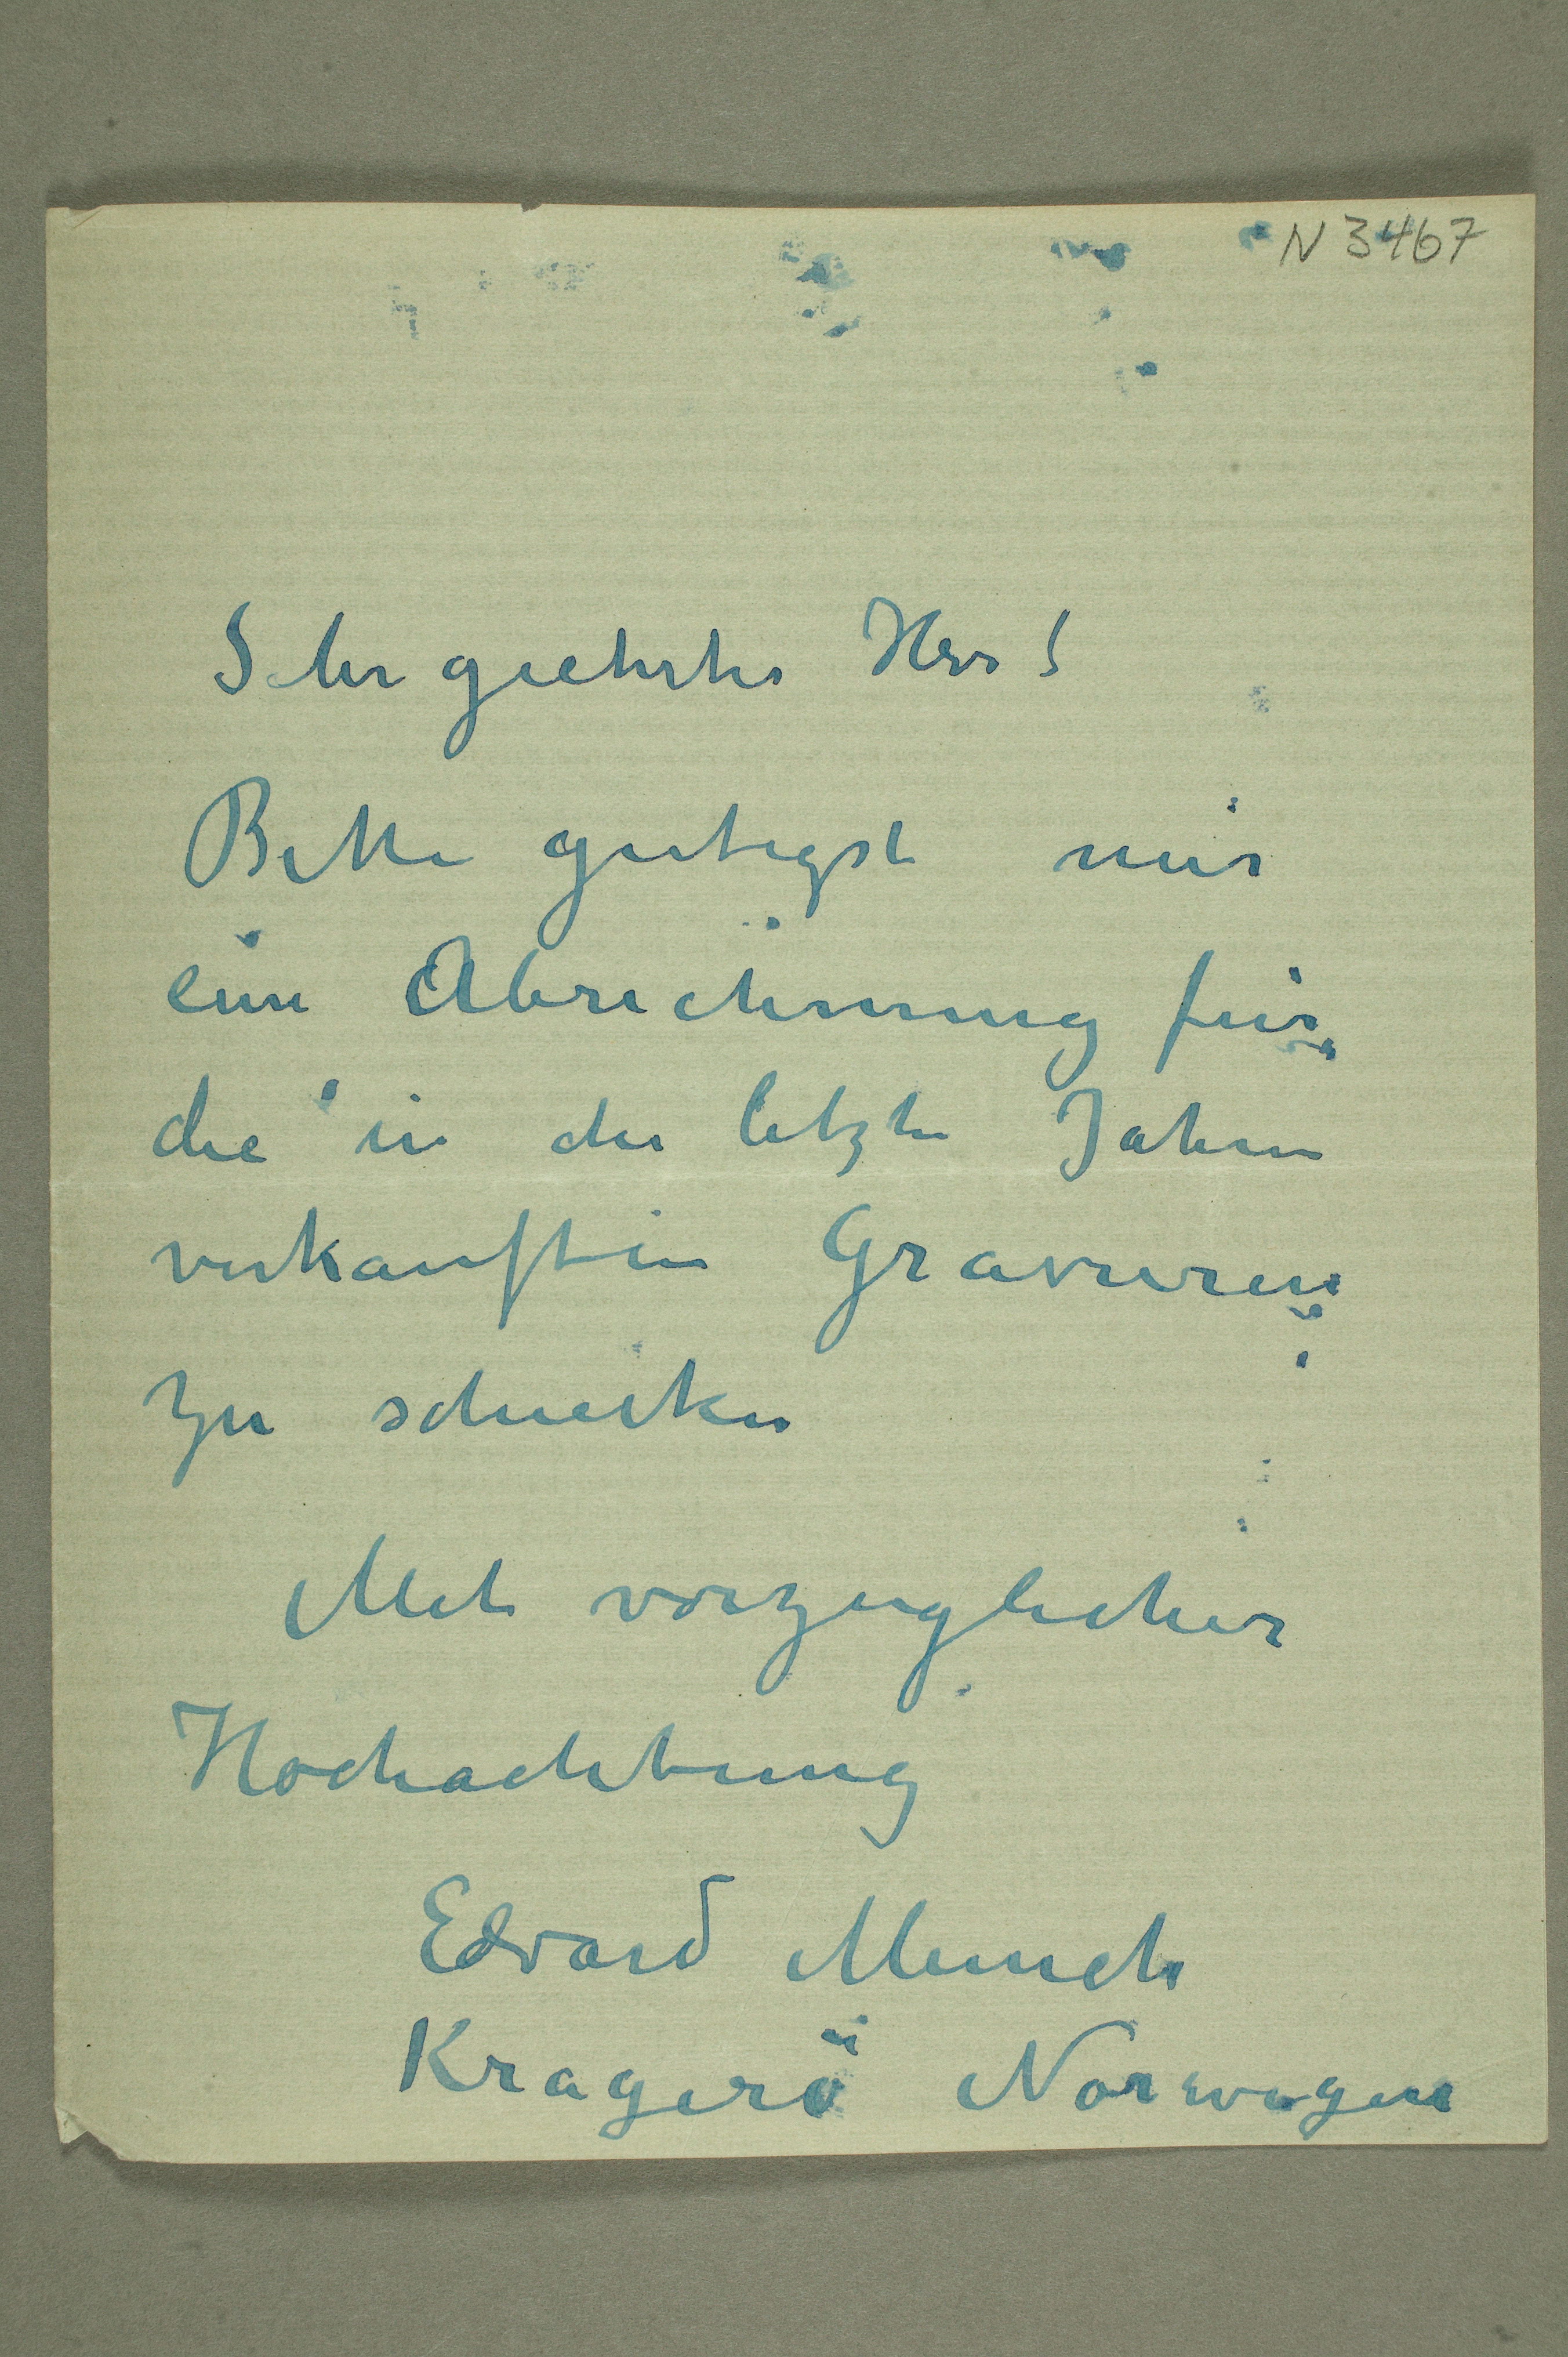 N 3467
Sehr geehrter Herr!
Bitte gutigst mir
eine Abrechnung fur
die in den letzten Jahren
verkauften Gravuren
zu schicken
Mit vorzuglicher
Hochachtung
Edvard Munch
Kragerö Norwegen